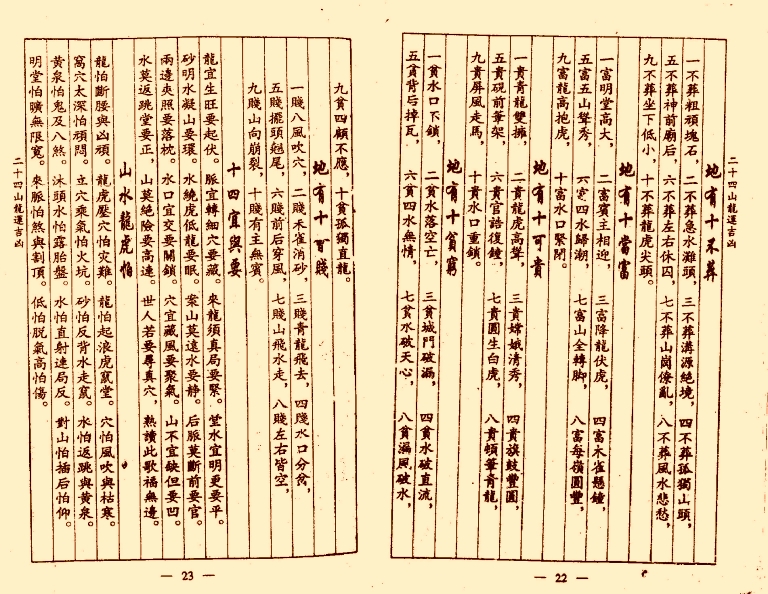 二十四山龍運吉凶
地有十不葬
一不葬粗頑塊石，二不葬急水灘頭，三不葬溝源絕境，四不葬孤獨山頭，
五不葬神前廟后，六不葬左右休囚，七不葬山崗僚亂，八不葬風水悲愁，
九不葬坐下低小，十不葬龍虎尖頭。
地有十當富
一富明堂高大，二富賓主相迎，三富降龍伏虎，四富木雀懸鐘，
五富五山聳秀，六富四水歸潮，七富山全轉脚，八富每嶺圓豐，
九富龍高抱虎，十富水口緊閉。
地有十可貴
一貴青龍雙擁，二貴龍虎高聳，三貴嫦娥清秀，四貴旗鼓豐圓，
五貴硯前筆架，六貴官誥復鐘，七貴圓生白虎，八貴頓筆青龍，
九貴屏風走馬，十貴水口重鎖。
地有十貧窮
一貧水口下鎖，二貧水落空亡，三貧城門破漏，四貧水破直流，
五貧背后掉瓦，六貧四水無情，七貧水破天心，八貧漏風破水，
— 22 —
九貧四顧不應，十貧孤獨直龍。
地有十可賤
一賤八風吹穴，二賤朱雀消砂，三賤青龍飛去，四賤水口分岔，
五賤擺頭翹尾，六賤前后穿風，七賤山飛水走，八賤左右皆空，
九賤山向崩裂，十賤有主無賓。
十四宜與要
龍宜生旺要起伏。脈宜轉細穴要藏。來龍須真局要緊。堂水宜明更要平。
砂明水凝山要環。水繞虎低龍要眠。案山莫遠水要靜。后脈莫斷前要官。
兩邊夾照要落枕。水口宜交要關鎖。穴宜藏風要聚氣。山不宜缺但要凹。
水莫返跳堂要正，山莫絕險要高遠。世人若要尋真穴，熟讀此歌福無邊。
山水龍虎怕
龍怕斷腰與凶頑。龍虎壓穴怕災難。龍怕起浪虎竄堂。穴怕風吹與枯寒。
窩穴太深怕頑悶。立穴乘氣怕火坑。砂怕反背水走竄。水怕返跳與黃泉。
黃泉怕鬼及八煞。沐頭水怕露胎盤。水怕直射連局反。對山怕插后怕仰。
明堂怕曠無限寬。來脈怕煞與割頂。低怕脫氣高怕傷。
二十四山龍運吉凶
— 23 —